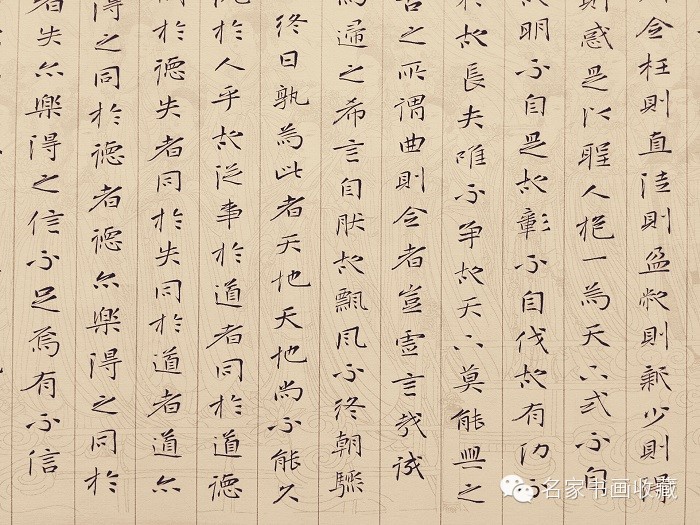 全枉則直洼則盈敝則新少則得
則惑是以聖人抱一為天下式不自
故明不自是故彰不自伐故有功不
故長夫唯不争故天下莫能與之
之所謂曲則全者豈虛言哉誠
歸之希言自然故飄風不終朝驟
終日孰為此者天地天地尚不能久
於人乎故從事於道者同於道德
同於德失者同於失同於道者道亦
得之同於德者德亦樂得之同於
者失亦樂得之信不足焉有不信
名家书画收藏